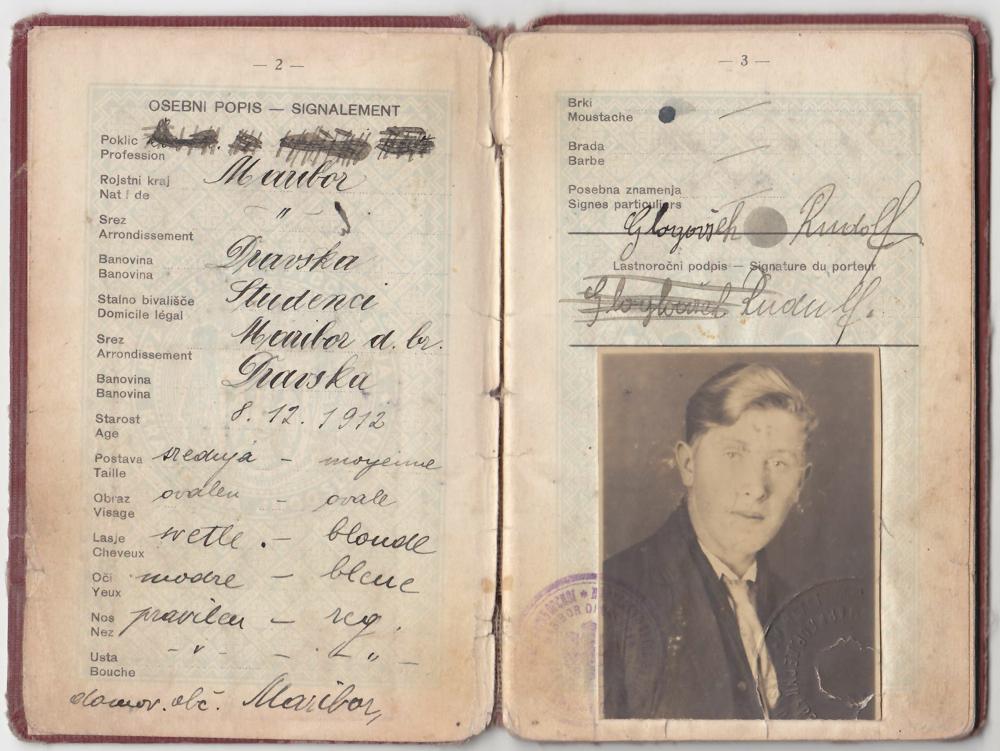 — 2 —
OSEBNI POPIS — SIGNALEMENT
Poklic
Profession
Rojstni kraj Maribor
Natif de
Srez "
Arrondissement
Banovina Dravska
Banovina
Stalno bivališče Studenci
Domicile légal
Srez Maribor d. br.
Arrondissement
Banovina Dravska
Banovina
Starost 8. 12. 1912
Age
Postava srednja - moyenne
Taille
Obraz ovalen - ovale
Visage
Lasje svetle. - blonde
Cheveux
Oči modre - bleue
Yeux
Nos pravilen - reg.
Nez
Usta - " - - " -
Bouche
domov. obč. Maribor,
— 3 —
Brki
Moustache
Brada
Barbe
Posebna znamenja
Signes particuliers
Glogovšek Rudolf
Lastnoročni podpis — Signature du porteur
Rudolf.